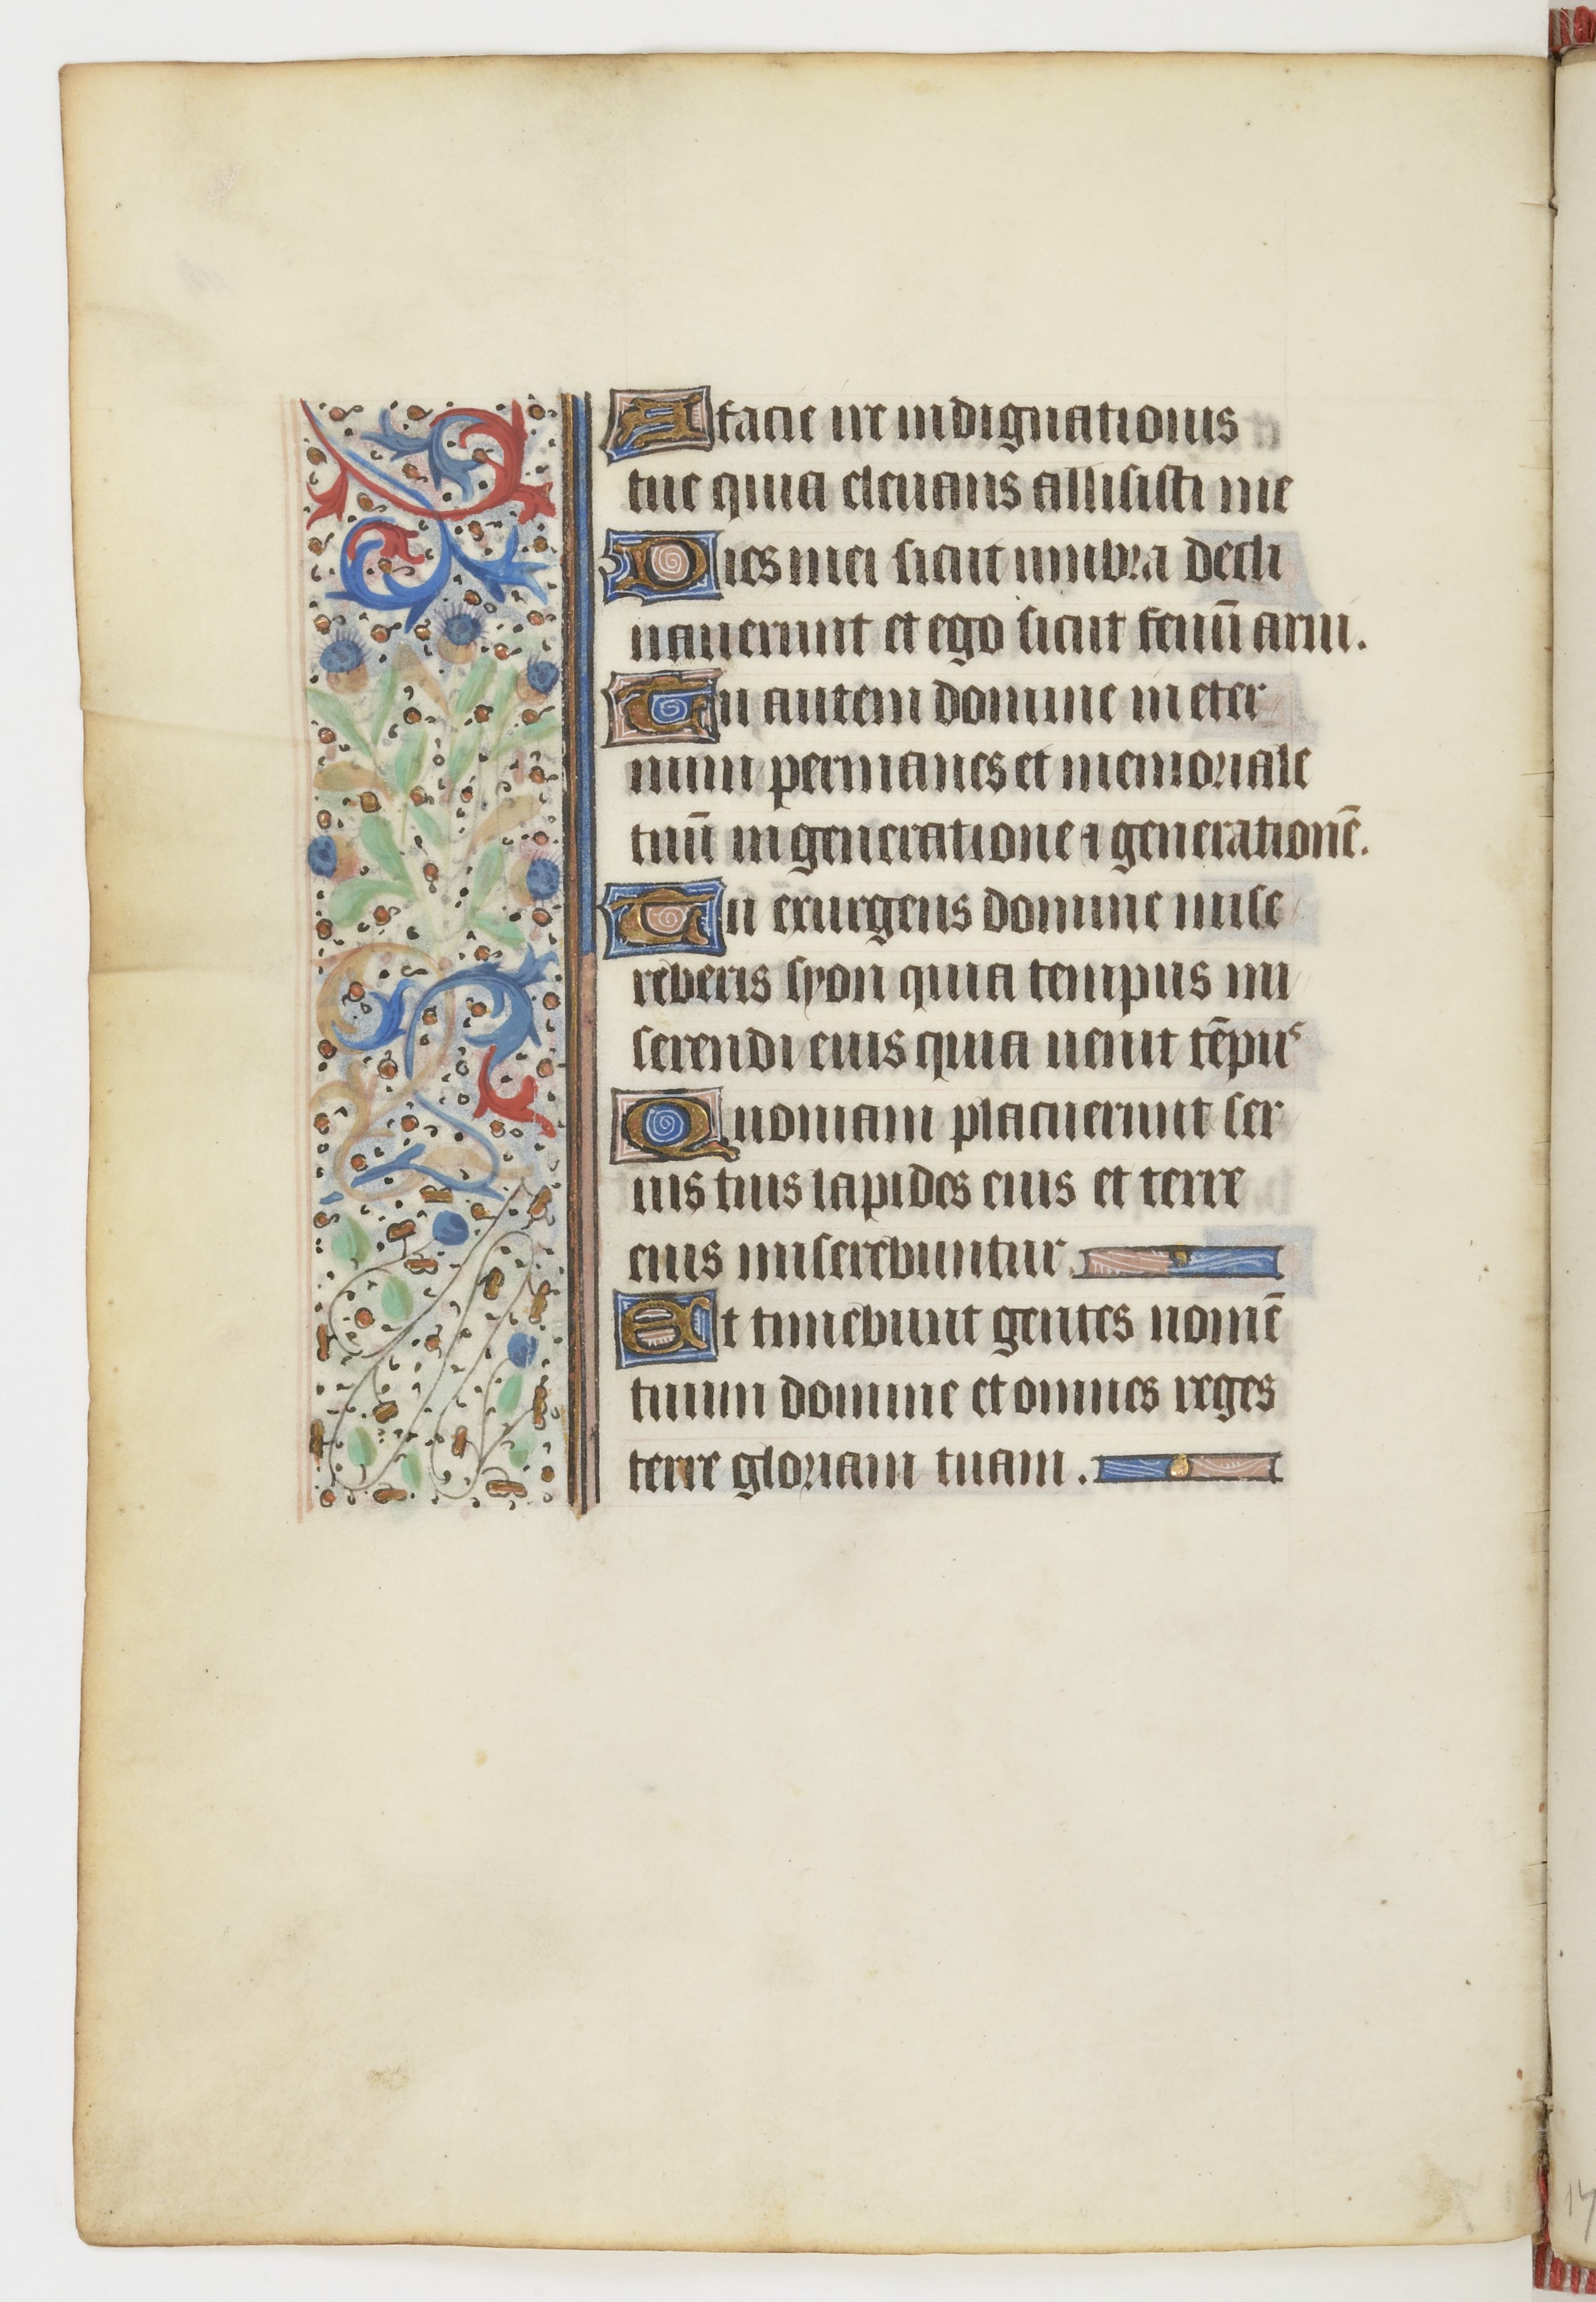 A facie ire indignationis
tue quia eleuans allisisti me
Dies mei sicut umbra decli
nauerunt et ego sicut fenū arui.
Tu autem domine in eter
num permanes et memoriale
tuū in generatione ⁊ generationē.
Tu exurgens domine mise
reberis syon quia tempus mi
serendi eius quia uenit tēpus
Quoniam placuerunt ser
uis tuis lapides eius et terre
eius miserebuntur.
Et timebunt gentes nomē
tuum domine et omnes reges
terre gloriam tuam.